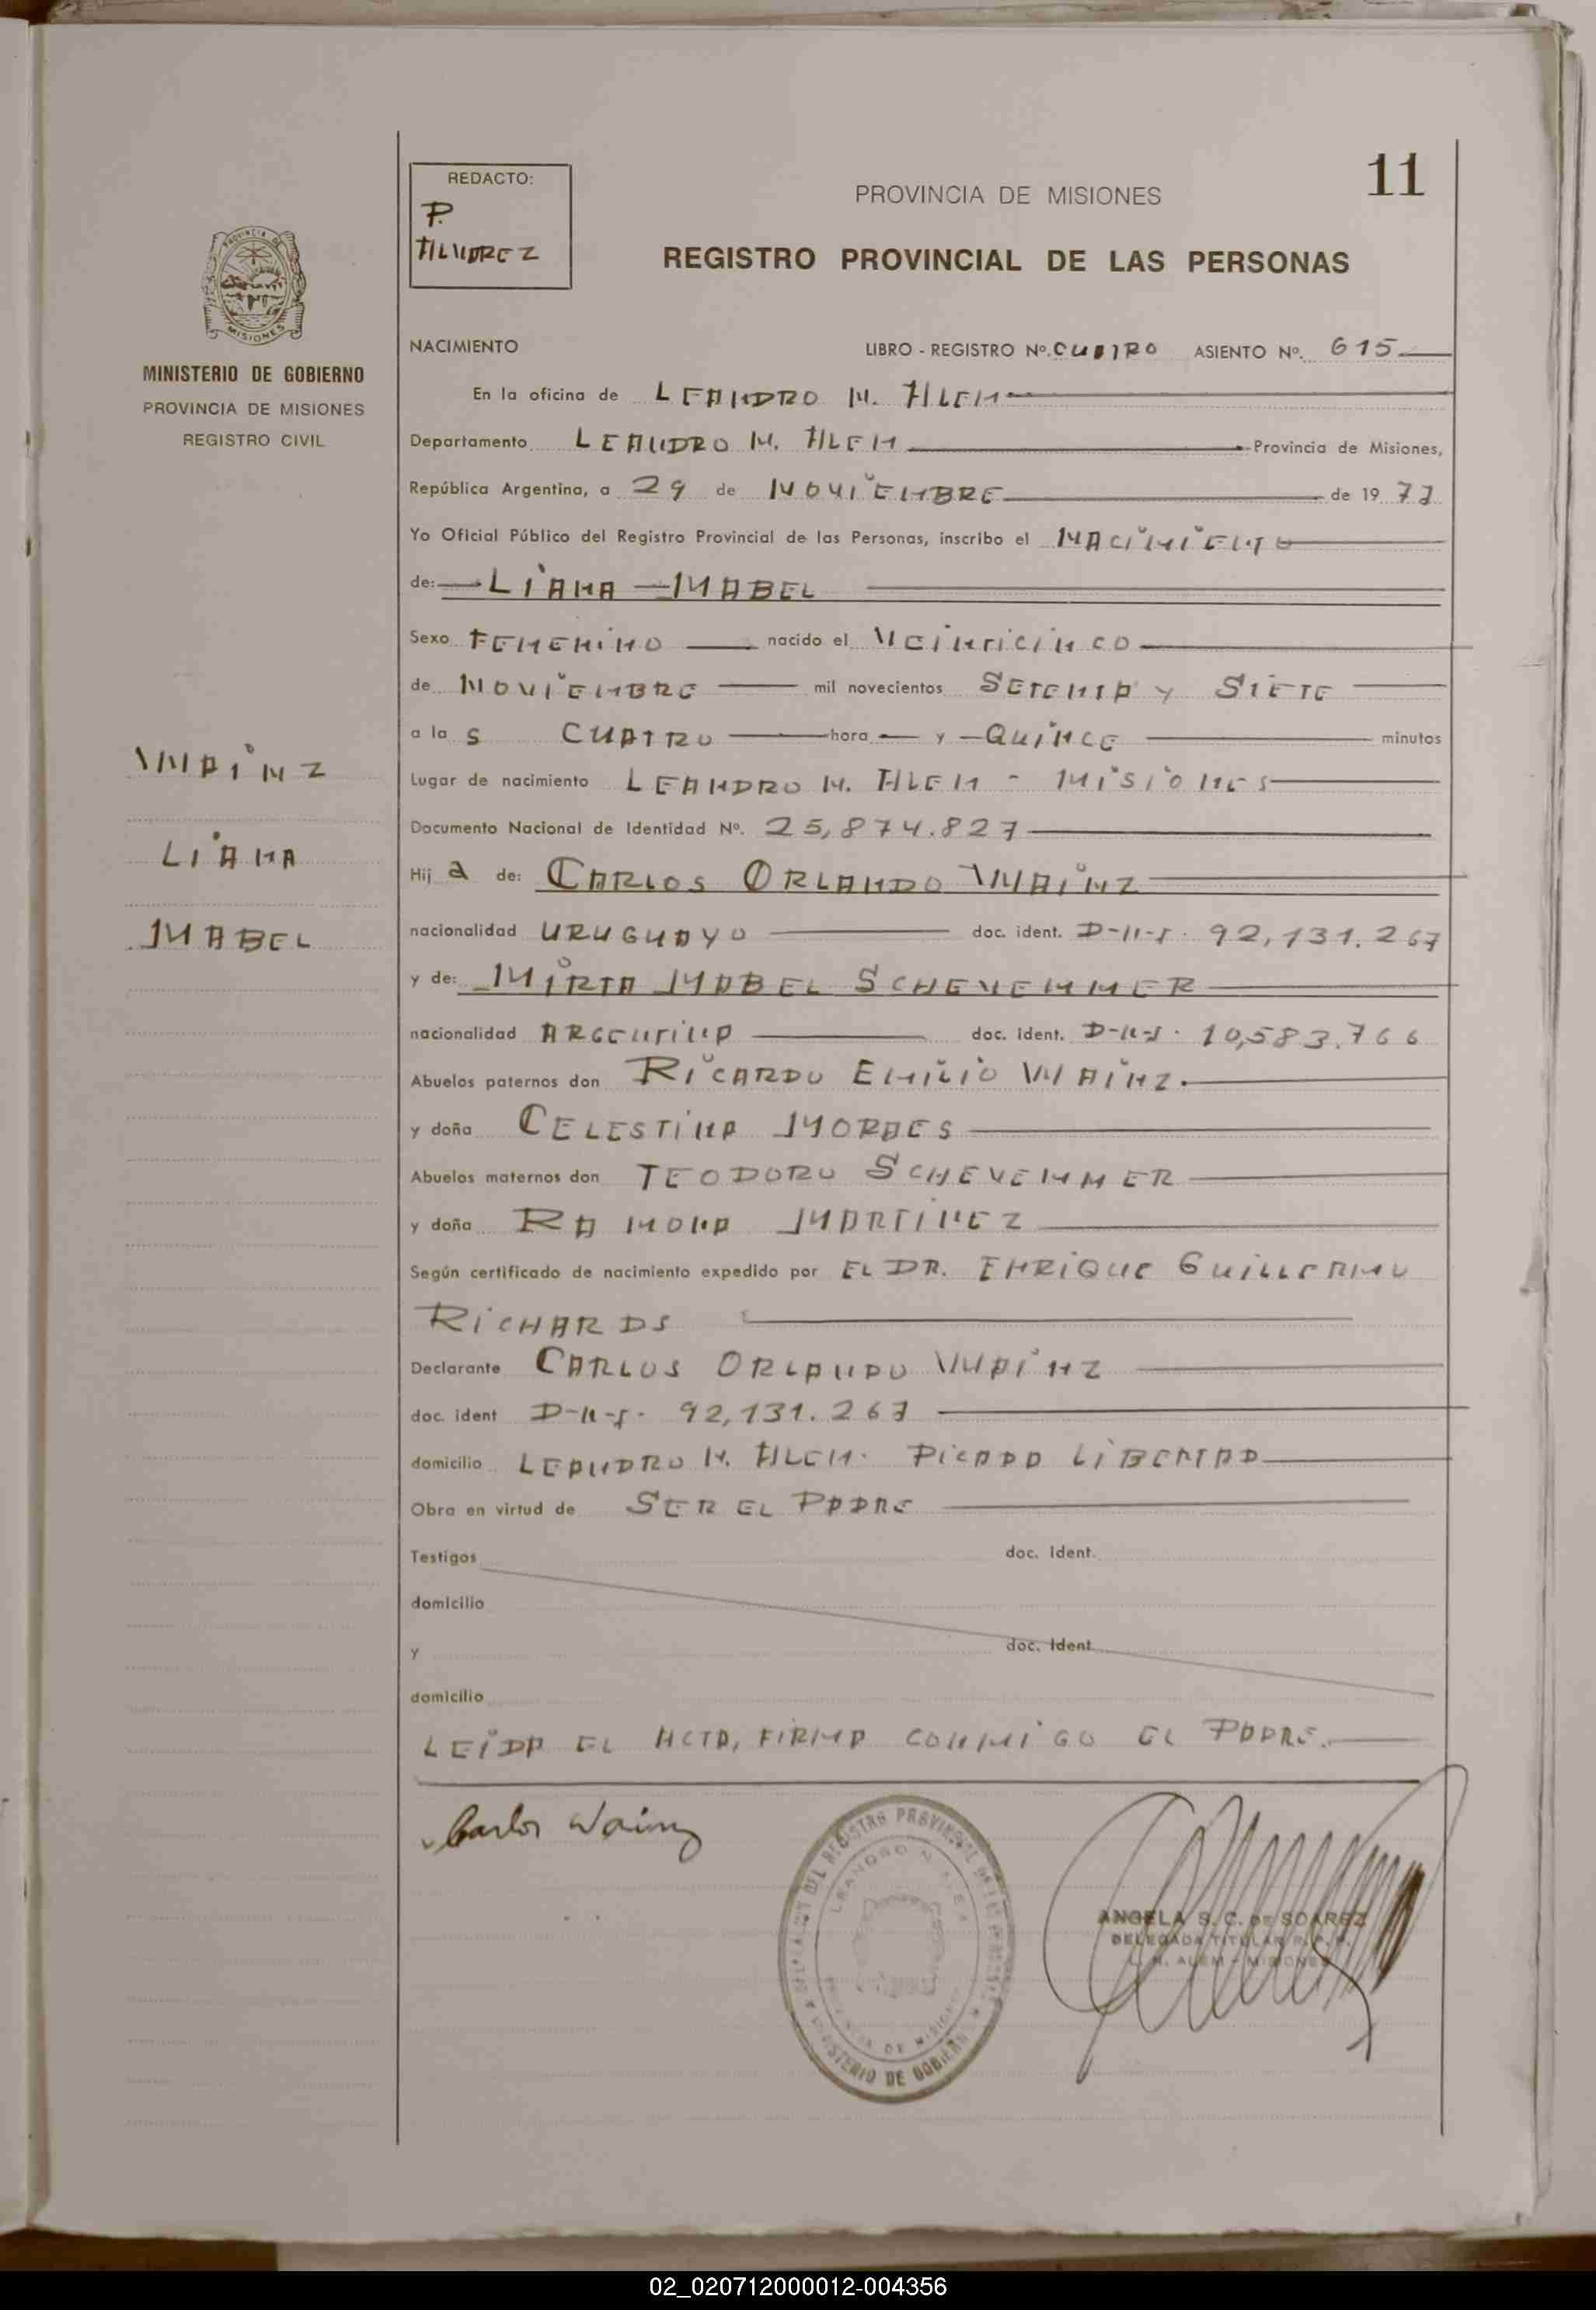 11
REDACTO:
P.
ALVAREZ
PROVINCIA DE MISIONES
REGISTRO PROVINCIAL DE LAS PERSONAS
PROVINCIA DE
MISIONES
MINISTERIO DE GOBIERNO
PROVINCIA DE MISIONES
REGISTRO CIVIL
WAINZ
LIANA
MABEL
NACIMIENTO LIBRO - REGISTRO Nº. CUATRO ASIENTO Nº. 615
En la oficina de LEANDRO N. ALEM
Departamento LEANDRO N. ALEM Provincia de Misiones,
República Argentina, a 29 de NOVIEMBRE de 19 77
Yo Oficial Público del Registro Provincial de las Personas, inscribo el NACIMIENTO
de: LIANA MABEL
Sexo FEMENINO nacido el VEINTICINCO
de NOVIEMBRE mil novecientos SETENTA Y SIETE
a la S CUATRO hora y QUINCE minutos
Lugar de nacimiento LEANDRO N. ALEM - MISIONES
Documento Nacional de Identidad Nº. 25,874.827
Hij a de: CARLOS ORLANDO WAINZ
nacionalidad URUGUAYO doc. ident. D-N-I. 92,131.267
y de: MIRTA MABEL SCHEVEMMER
nacionalidad ARGENTINA doc. ident. D-N-I. 10,583.766
Abuelos paternos don RICARDO EMILIO WAINZ.
y doña CELESTINA MORAES
Abuelos maternos don TEODORO SCHEVEMMER
y doña RAMONA MARTINEZ
Según certificado de nacimiento expedido por EL DR. ENRIQUE GUILLERMO
RICHARDS
Declarante CARLOS ORLANDO WAINZ
doc. ident D-N-I. 92,131.267
domicilio LEANDRO N. ALEM. PICADA LIBERTAD
Obra en virtud de SER EL PADRE
Testigos doc. ident.
domicilio
y doc. ident.
domicilio
LEIDA EL ACTA, FIRMA CONMIGO EL PADRE.
Carlos Wainz
REGISTRO PROVINCIAL DE LAS PERSONAS
LEANDRO N. ALEM
DE MISIONES
MINISTERIO DE GOBIERNO
ANGELA S. C. DE SOAREZ
DELEGADA TITULAR R. P. P.
L. N. ALEM - MISIONES
02_020712000012-004356